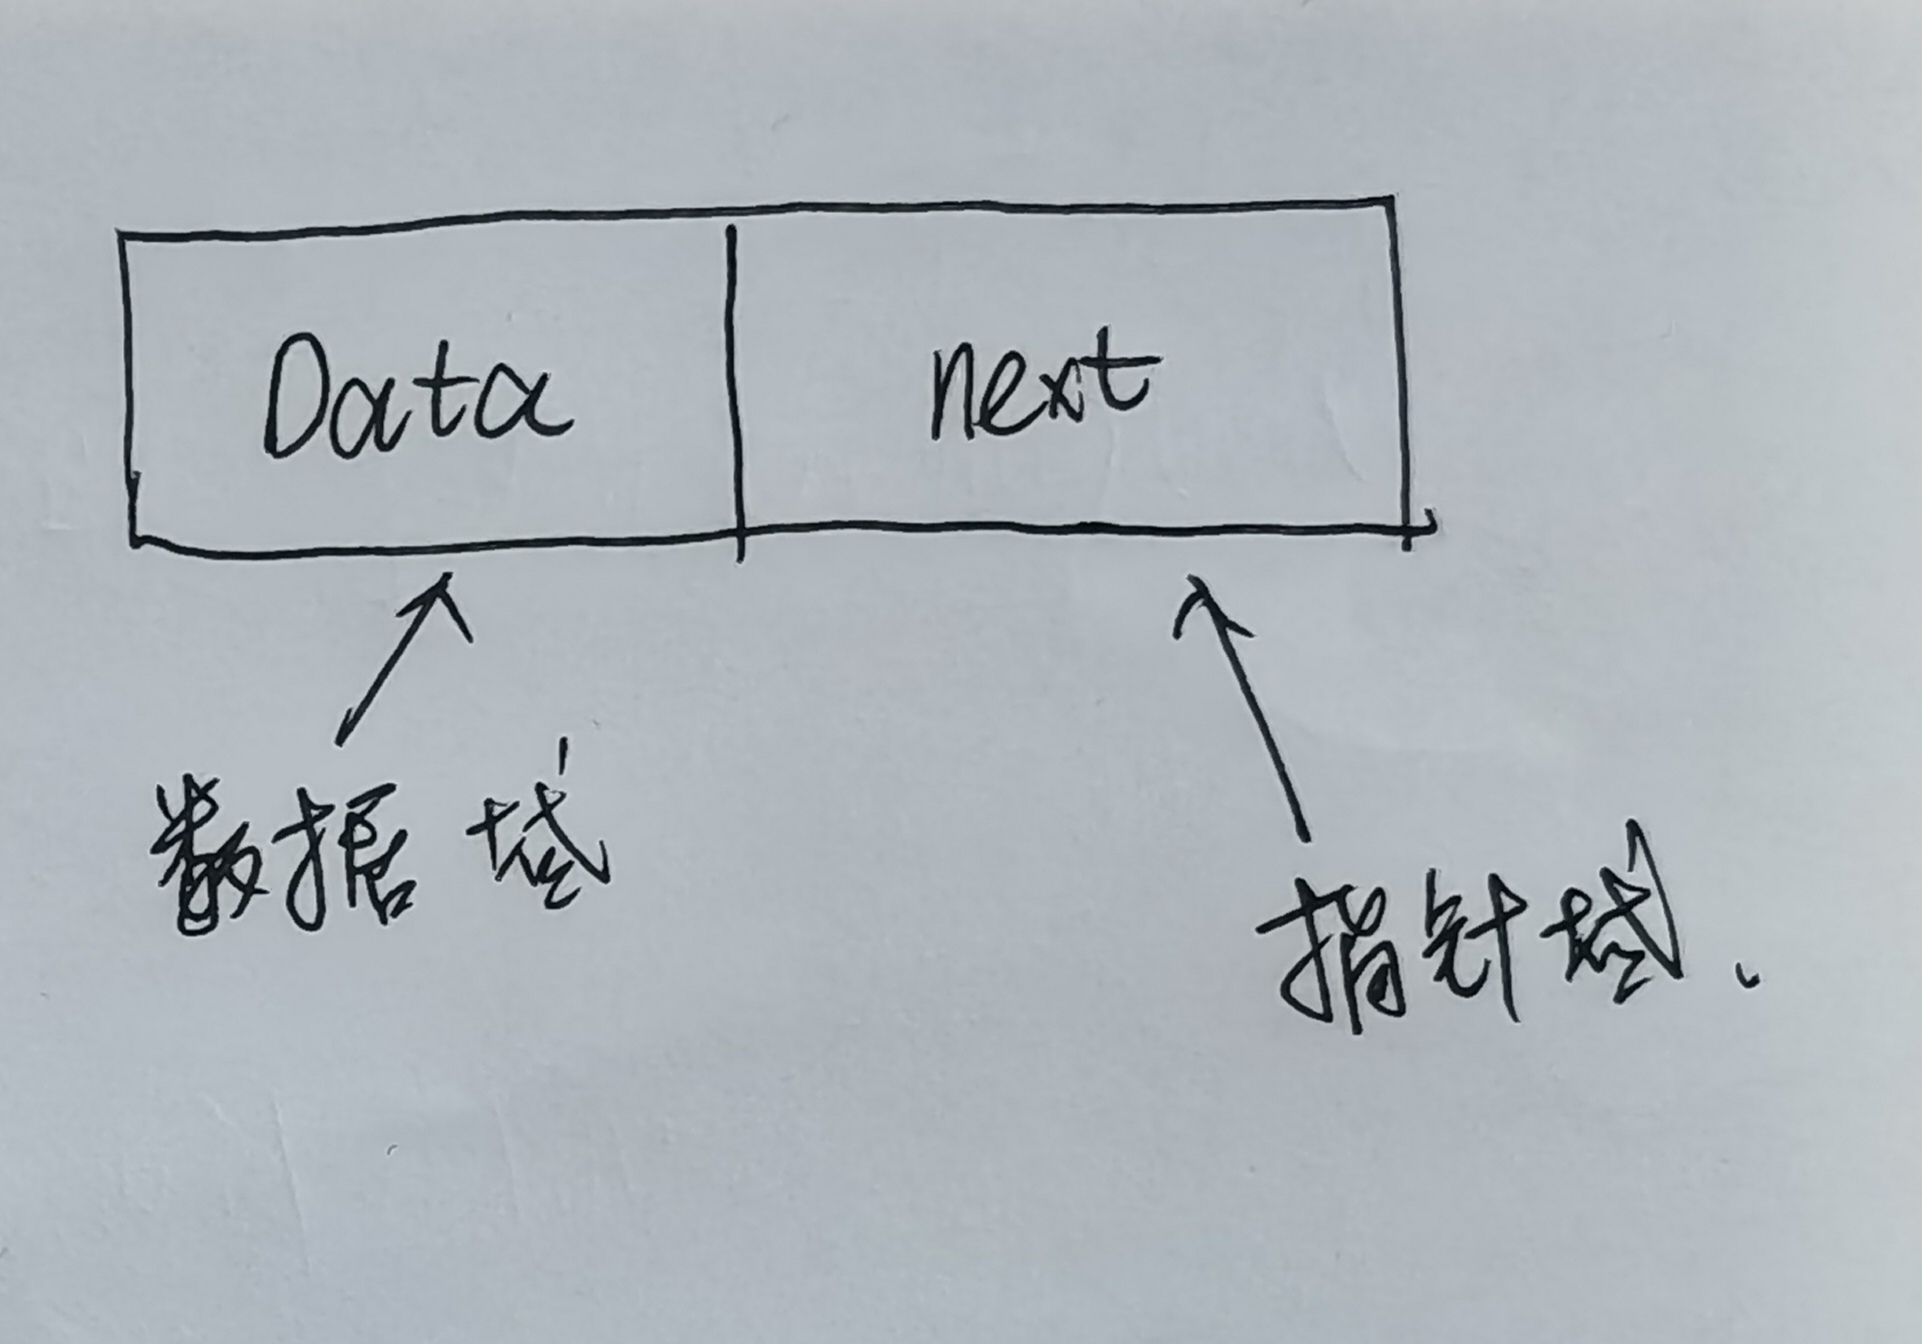 Data next
数据域
指针域.